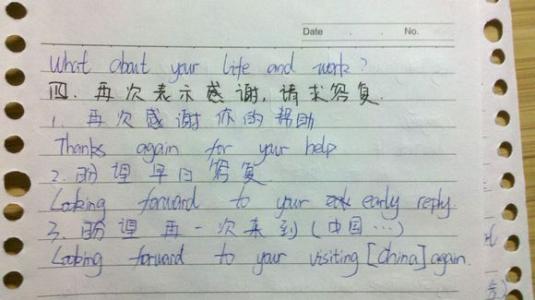 Date No.
What about your life and work?
四. 再次表示感谢, 请求答复.
1. 再次感谢你的帮助
Thanks again for your help
2. 盼望早日答复
Looking forward to your early reply.
3. 盼望再一次来到(中国…)
Looking forward to your visiting [China] again.